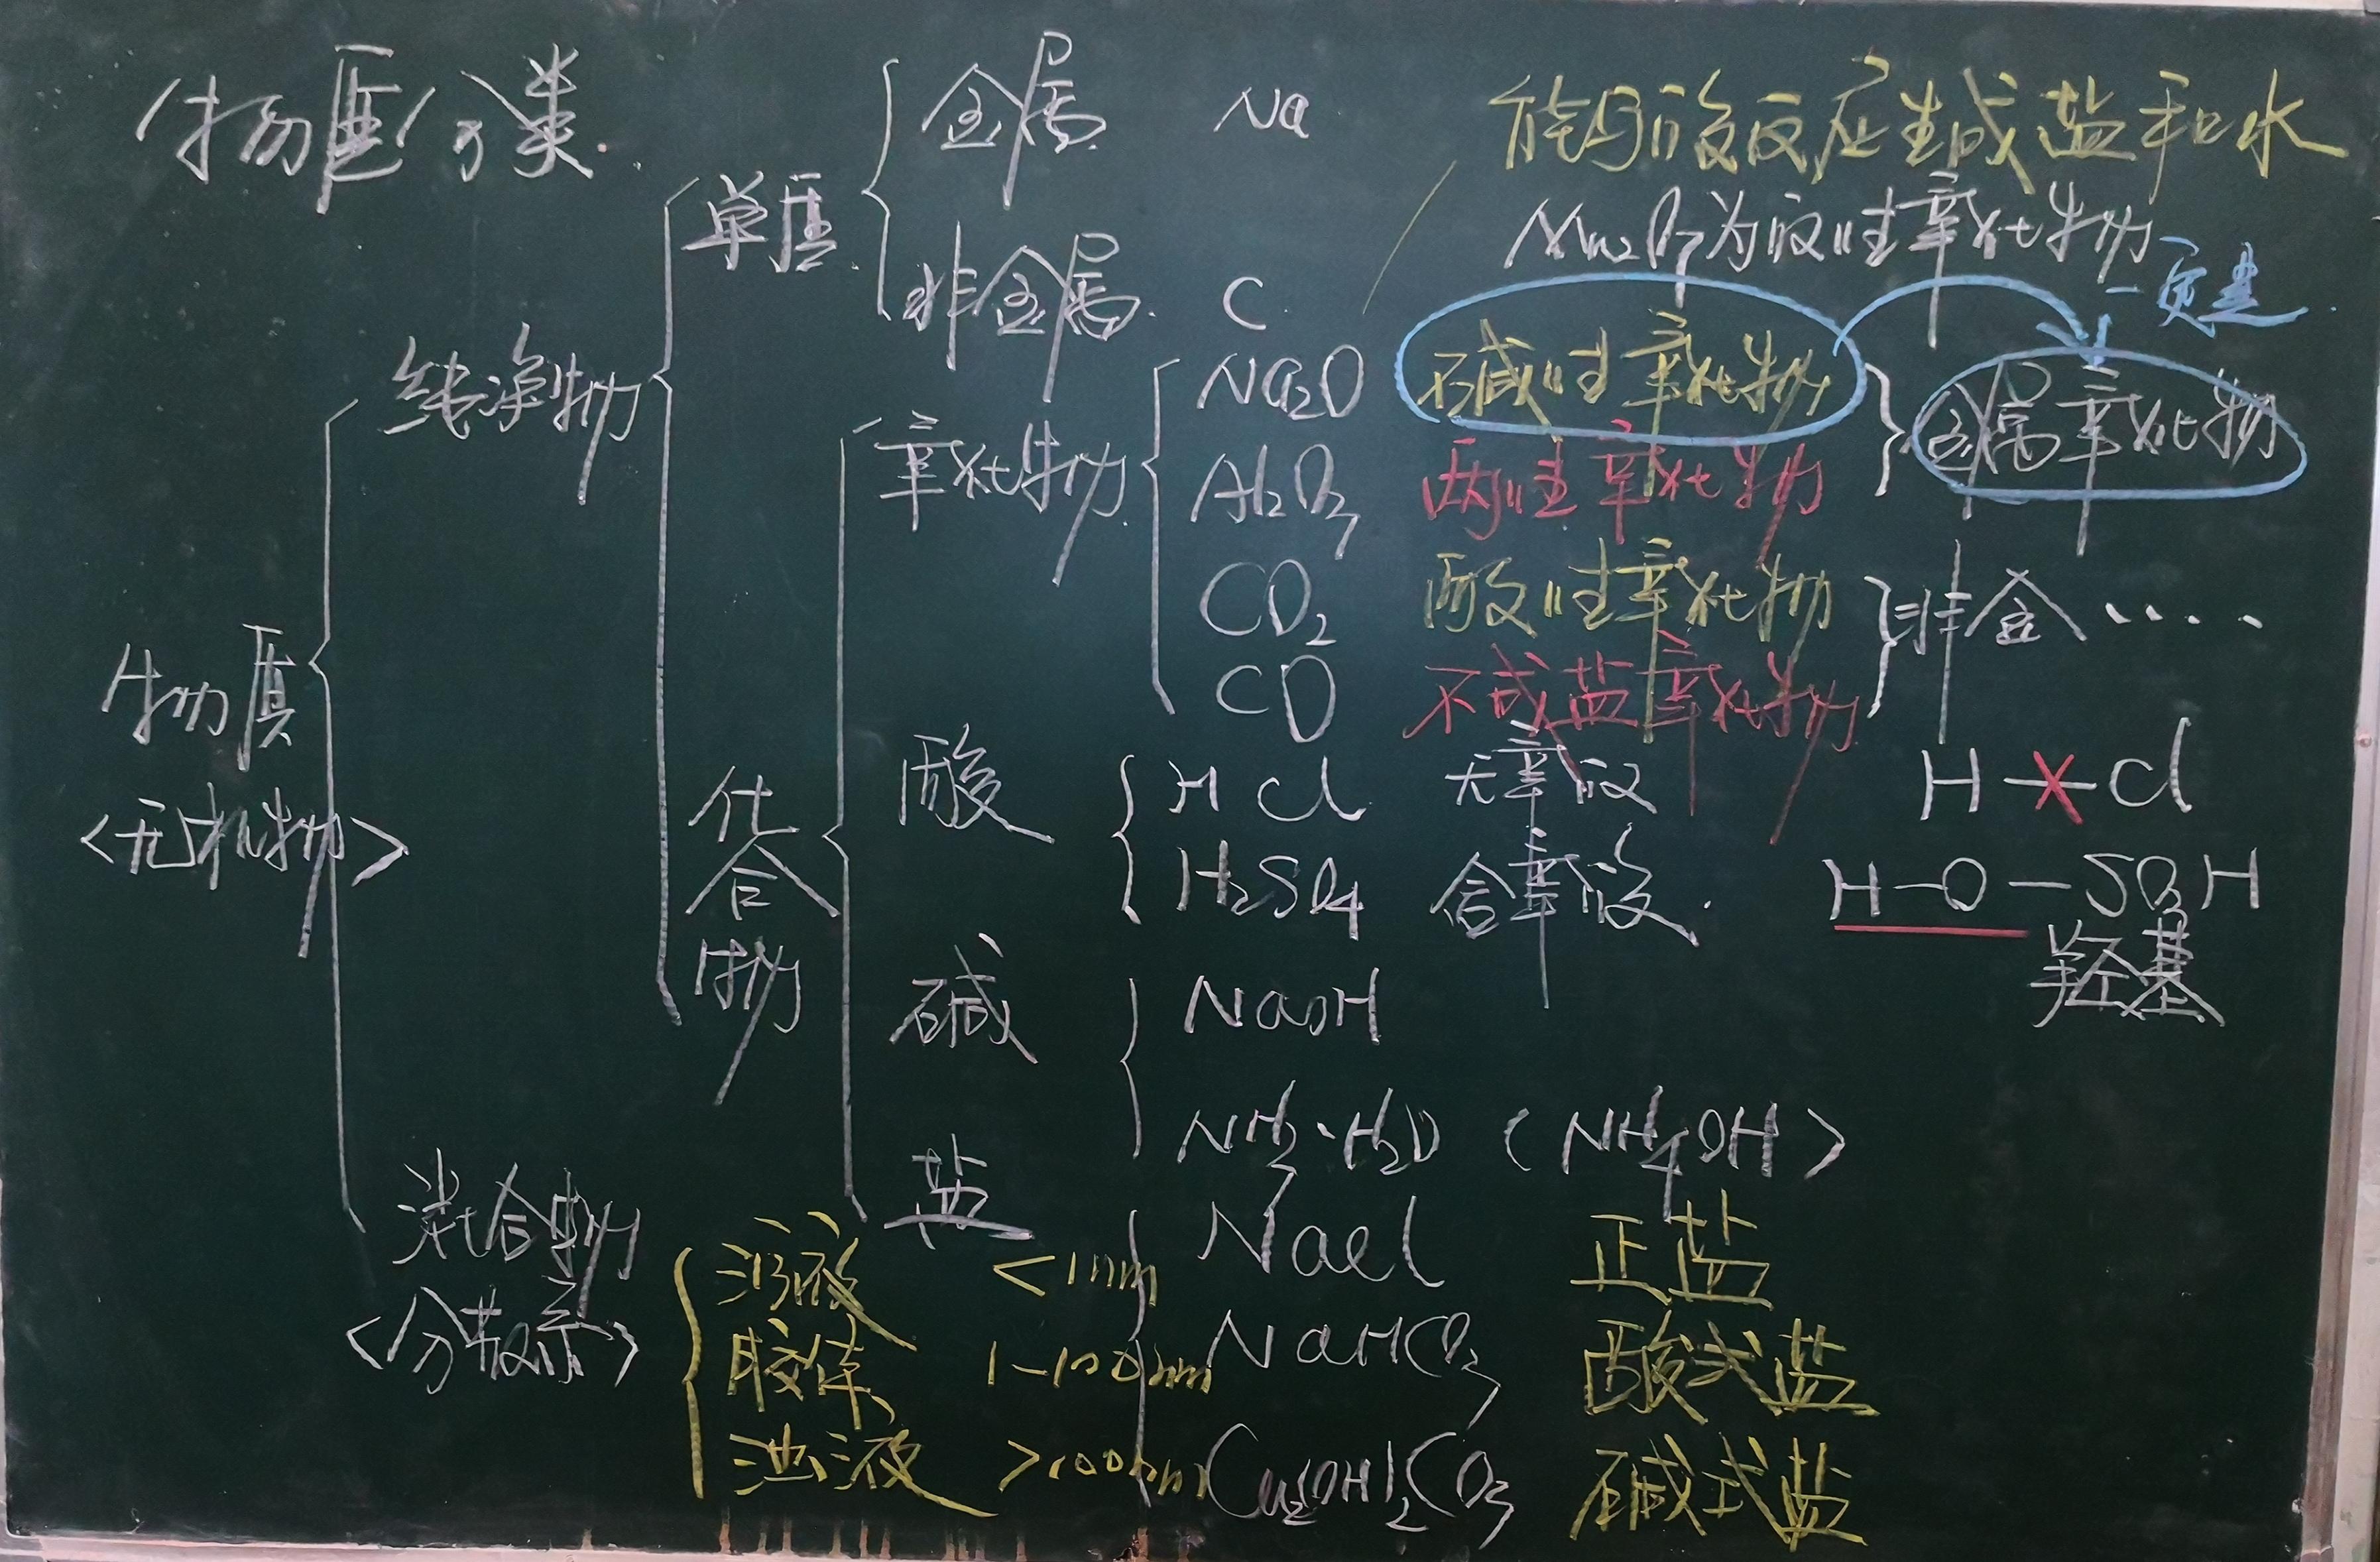 物质分类
能与酸反应生成盐和水
Mn₂O₇为酸性氧化物
一定是
物质
<无机物>
纯净物
单质
金属 Na
非金属 C
化合物
氧化物
Na₂O 碱性氧化物
Al₂O₃ 两性氧化物
金属氧化物
CO₂ 酸性氧化物
CO 不成盐氧化物
非金……
酸
HCl 无氧酸 H—Cl
H₂SO₄ 含氧酸. H—O—SO₃H
羟基
碱
NaOH
NH₃·H₂O (NH₄OH)
盐
NaCl 正盐
NaHCO₃ 酸式盐
Cu₂(OH)₂CO₃ 碱式盐
混合物
<分散系>
溶液 <1nm
胶体 1-100nm
浊液 >100nm